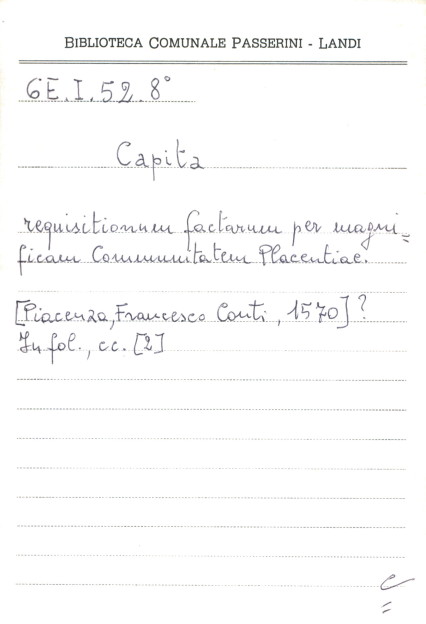 BIBLIOTECA COMUNALE PASSERINI - LANDI
6E.I.52.8°
Capita
requisitionum factarum per magni=
ficam Communitatem Placentiae.
[Piacenza, Francesco Conti, 1570]?
In fol., cc. [2]